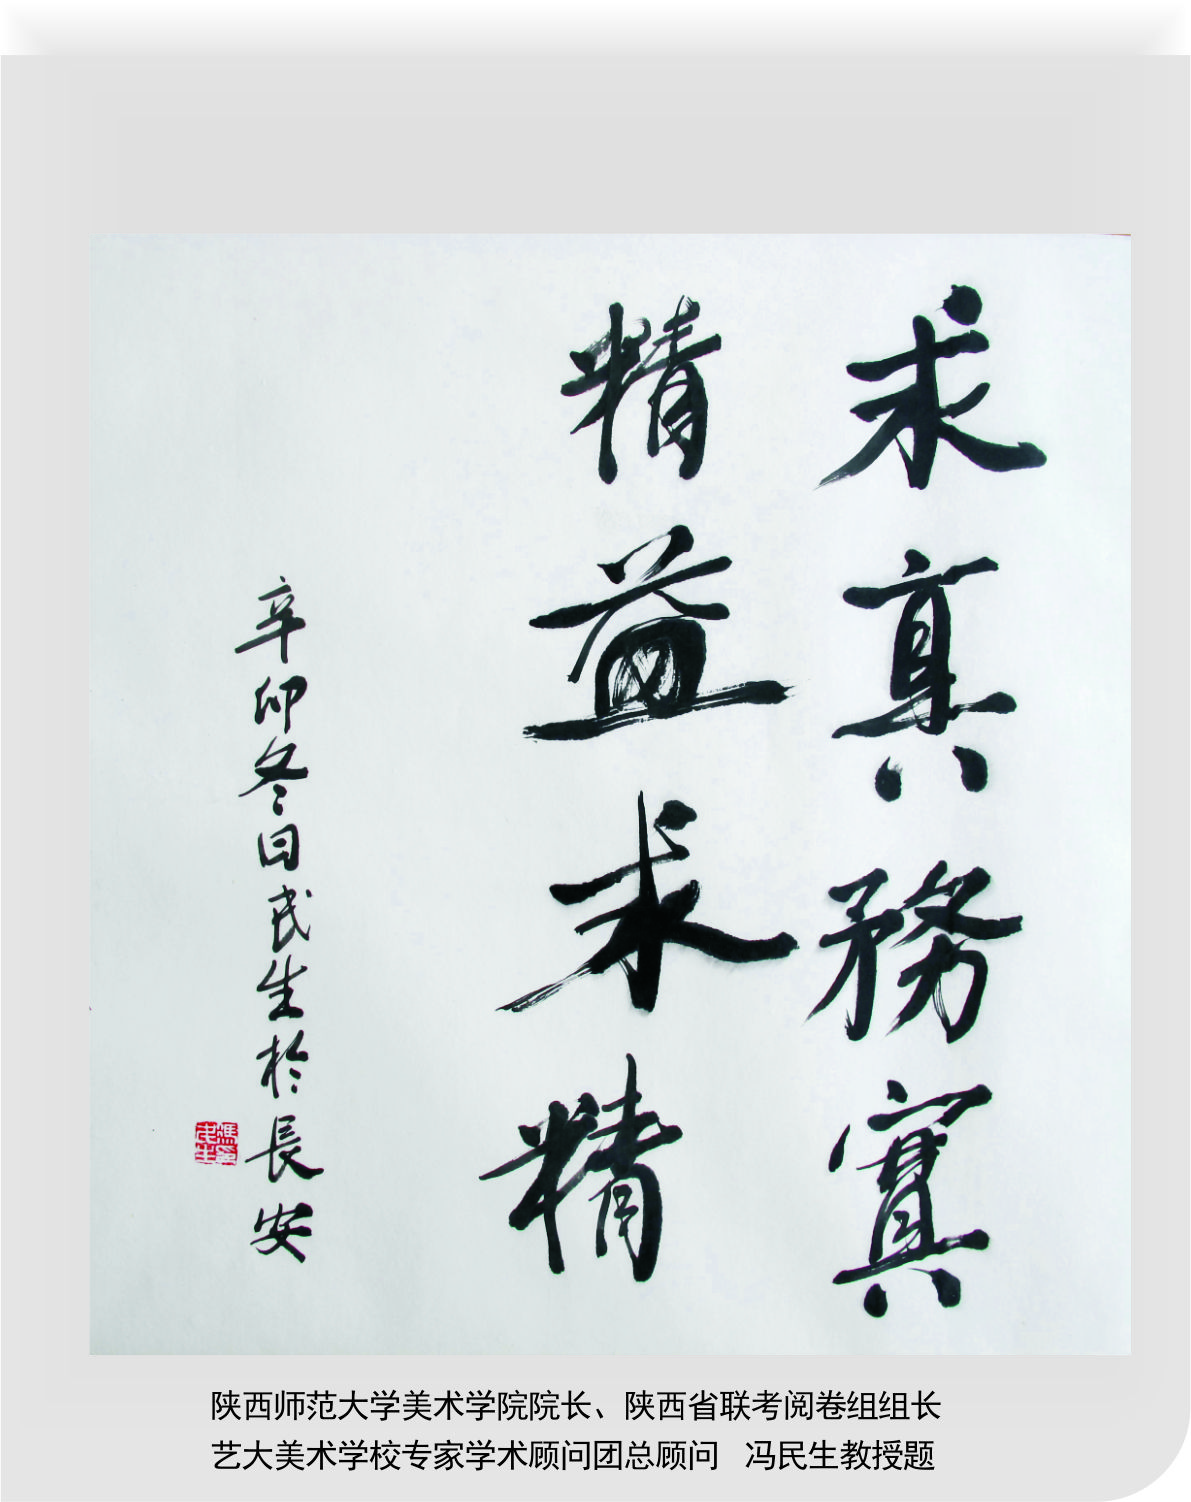 求真務實
精益求精
辛卯冬日民生於長安
馮民生
陕西师范大学美术学院院长、陕西省联考阅卷组组长
艺大美术学校专家学术顾问团总顾问 冯民生教授题